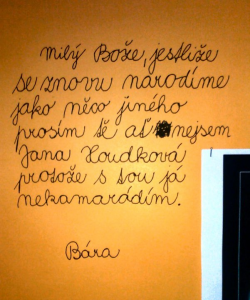 milý Bože, jestliže
se znovu narodíme
jako něco jiného
prosím tě ať nejsem
Jana Houdková
protože s tou já
nekamarádím.
Bára